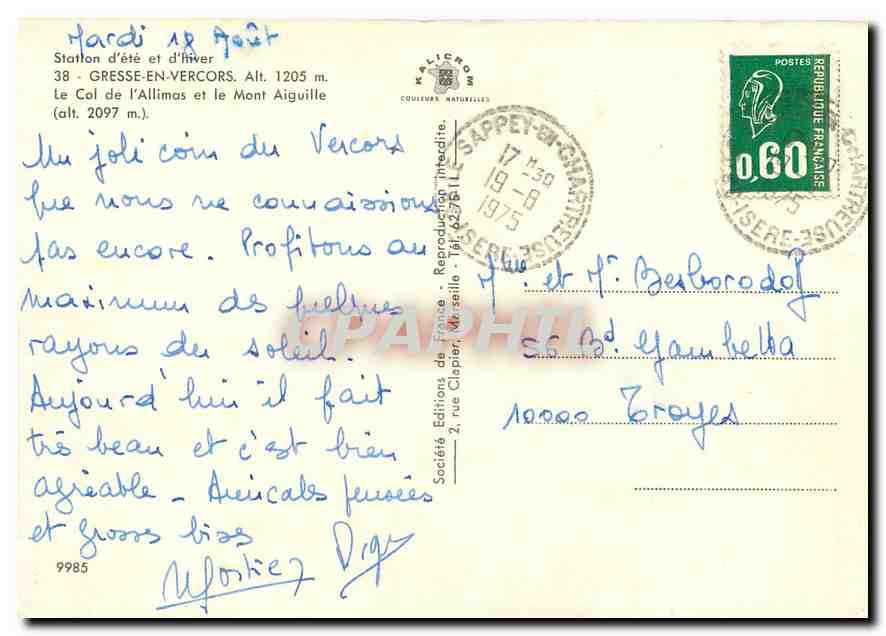 Mardi 19 Août
Station d'été et d'hiver
38 - GRESSE-EN-VERCORS. Alt. 1205 m.
Le Col de l'Allimas et le Mont Aiguille
(alt. 2097 m.).
Un joli coin du Vercors
que nous ne connaissions
pas encore. Profitons au
maximum des quelques
rayons du soleil.
Aujourd'hui il fait
très beau et c'est bien
agréable - Amicales pensées
et grosses bises
9985
KALICROM
COULEURS NATURELLES
Société Editions de France - Reproduction interdite.
2, rue Clapier, Marseille - Tél. 62-75-11
LE SAPPEY-EN-CHARTREUSE
17 H -30
19 -8
1975
ISERE
POSTES
REPUBLIQUE FRANÇAISE
0,60
CHARTREUSE
ISERE
CPAPHIL
Mme et Mr. Besborodof
56 Bd. Gambetta
10000 Troyes